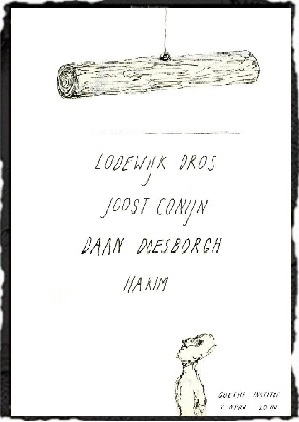 LODEWIJK DROS
JOOST CONIJN
DAAN DOESBORGH
HAKIM
GOETHE INSTITUT